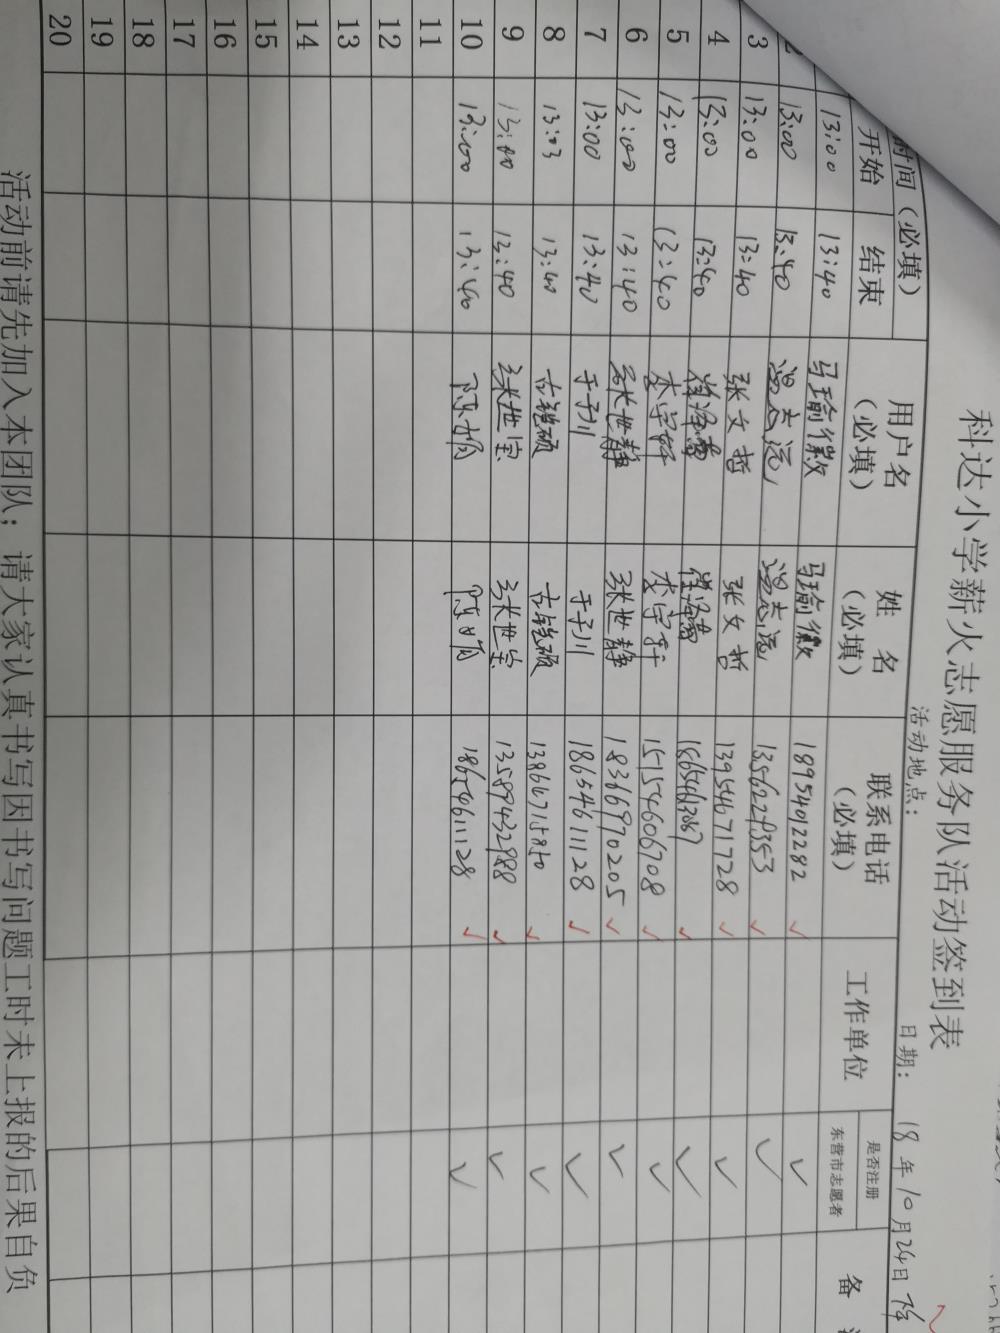 科达小学薪火志愿服务队活动签到表
活动地点： 日期：18年10月24日
时间（必填） 用户名（必填） 姓 名（必填） 联系电话（必填） 工作单位 是否注册东营市志愿者 备
开始 结束
13:00 13:40 马瑜徽 马瑜徽 18954012282 ✓
13:00 13:40 温志远 温志远 13562229353 ✓
3 13:00 13:40 张文哲 张文哲 13954671728 ✓
4 13:00 13:40 18654613067 ✓
5 13:00 13:40 李宇轩 李宇轩 15154606708 ✓
6 13:00 13:40 张世静 张世静 18366970205 ✓
7 13:00 13:40 于子川 于子川 18654611128 ✓
8 13:03 13:40 古铠硕 古铠硕 13864715850 ✓
9 13:00 13:40 张世宝 张世宝 13589432988 ✓
10 13:00 13:40 18654611128 ✓
11
12
13
14
15
16
17
18
19
20
活动前请先加入本团队；请大家认真书写因书写问题工时未上报的后果自负